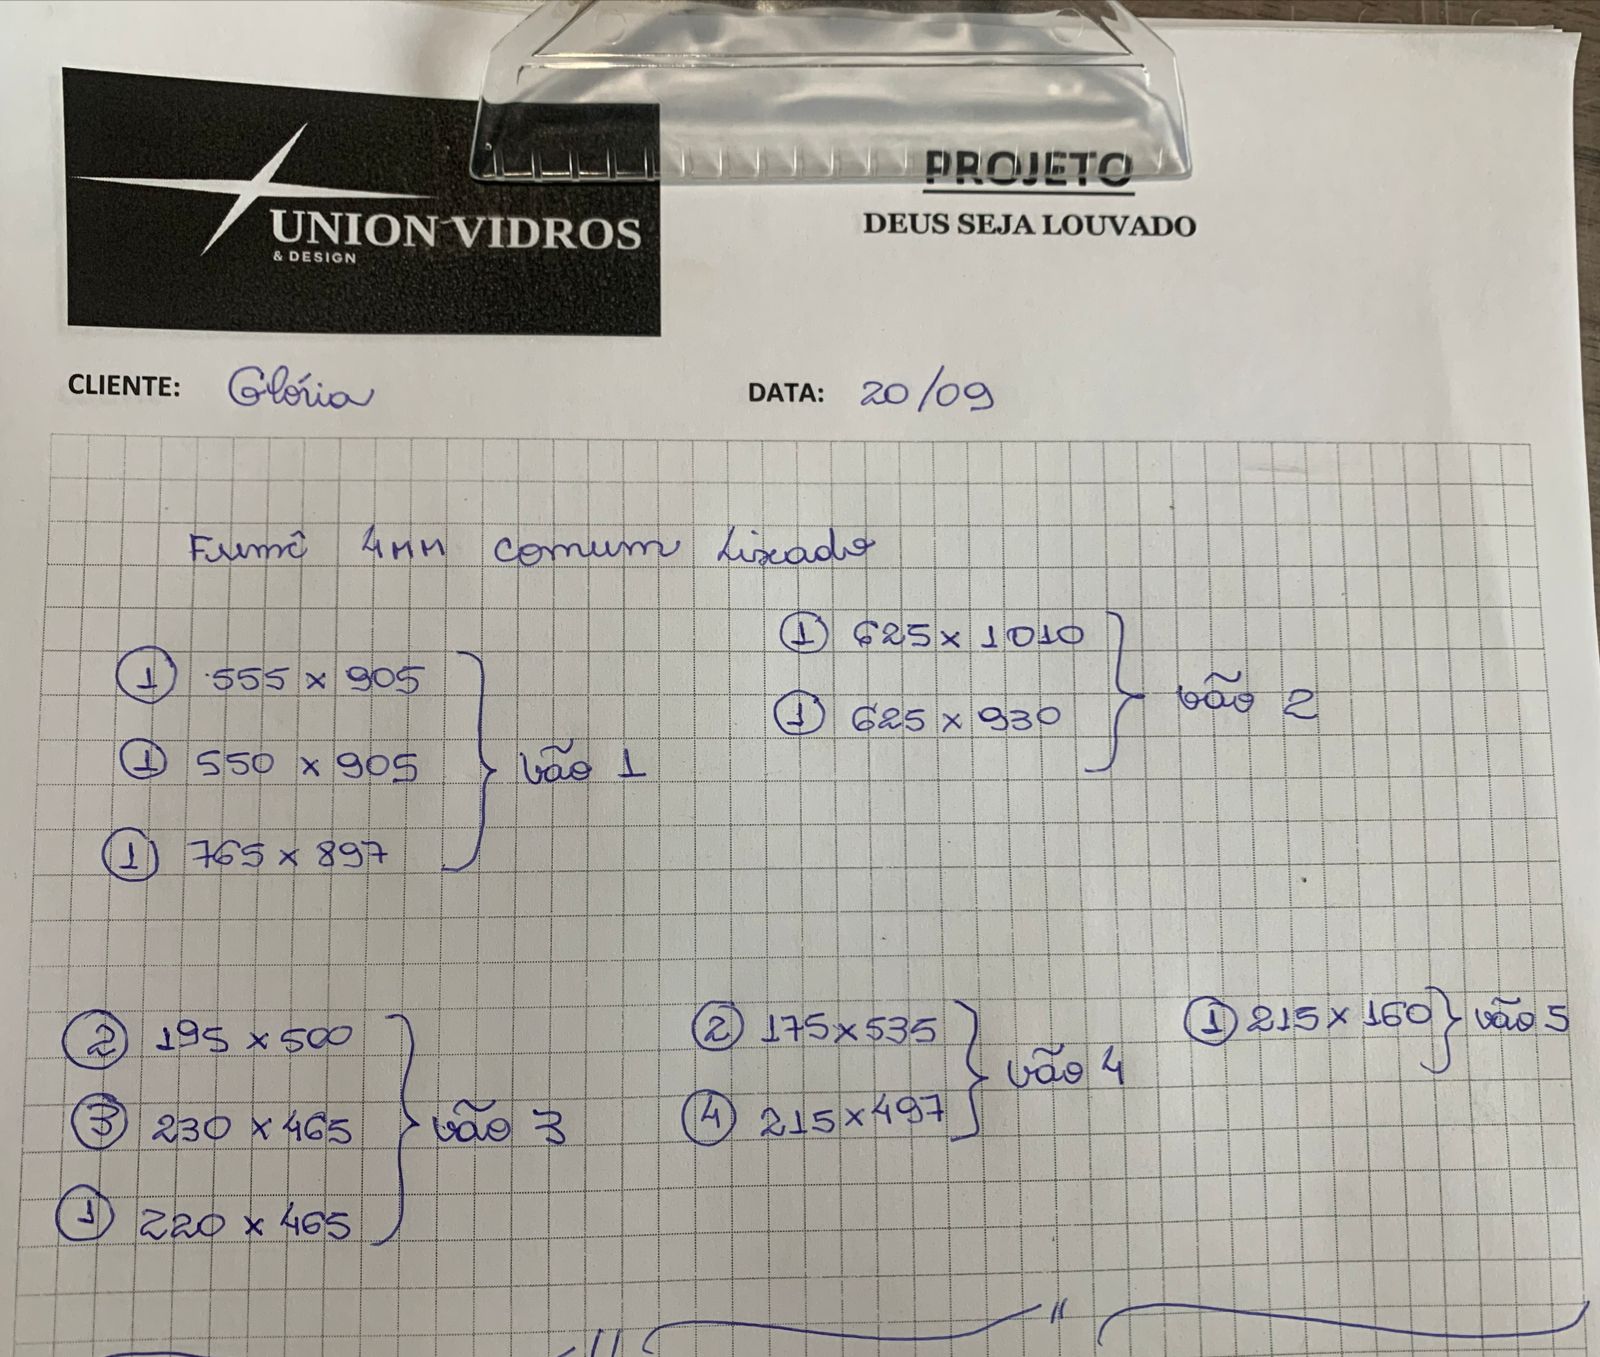 UNION VIDROS
& DESIGN
PROJETO
DEUS SEJA LOUVADO
CLIENTE: Glória
DATA: 20/09
Fumê 4MM comum Lixado
1 555 x 905
1 550 x 905
1 765 x 897
vão 1
1 625 x 1010
1 625 x 930
vão 2
2 195 x 500
3 230 x 465
1 220 x 465
vão 3
2 175 x 535
4 215 x 497
vão 4
1 215 x 160
vão 5